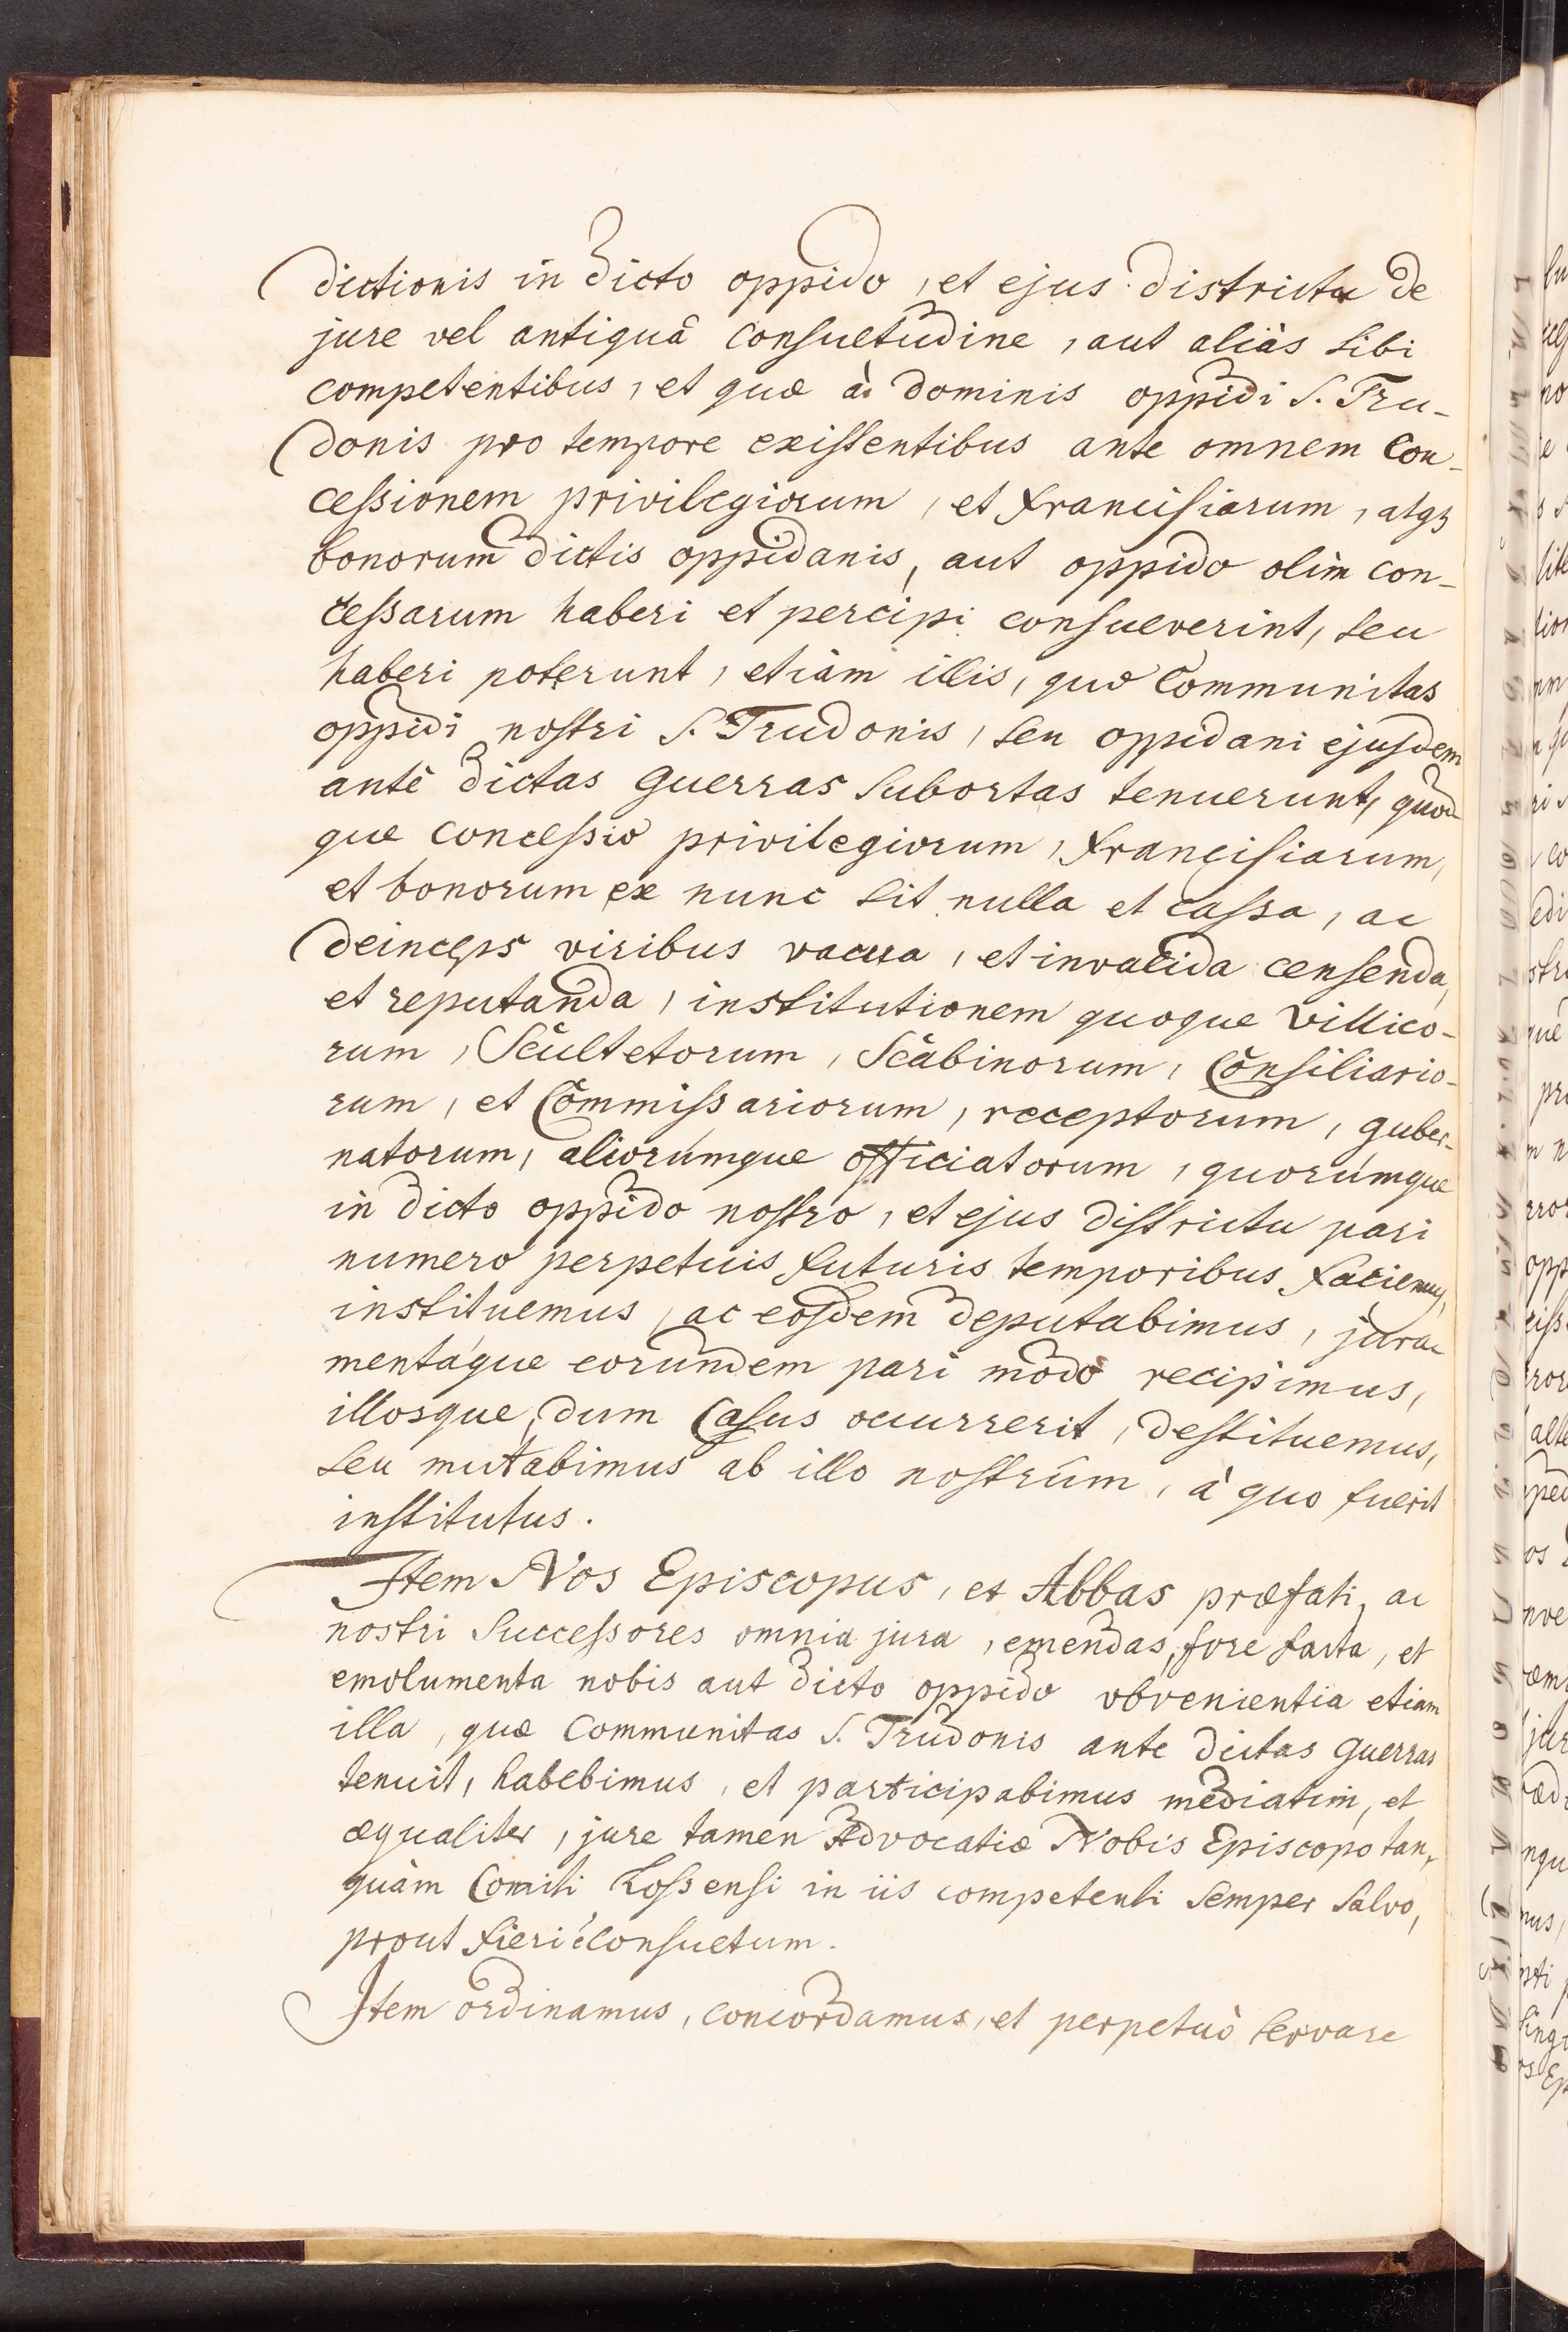 dictionis in dicto oppido, et ejus districtu de
jure vel antiquâ consuetudine, aut aliàs sibi
competentibus, et quæ à dominis oppidi S. Tru-
donis pro tempore existentibus ante omnem con-
cessionem privilegiorum, et francisiarum, atq3
bonorum dictis oppidanis, aut oppido olim con-
cessarum haberi et percipi consueverint, seu
haberi poterunt, etiàm illis, quæ Communitas
oppidi nostri S. Trudonis, seu oppidani ejusdem
antè dictas guerras subortas tenuerunt, quod
que concessio privilegiorum, francisiarum,
et bonorum ex nunc sit nulla et cassa, ac
deinceps viribus vacua, et invalida censenda,
et reputanda, institutionem quoque villico-
rum, Scultetorum, Scabinorum, Consiliario-
rum, et Commissariorum, receptorum, guber-
natorum, aliorúmque officiatorum, quorúmque
in dicto oppido nostro, et ejus districtu pari
numero perpetuis futuris temporibus faciemus,
instituemus, ac eosdem deputabimus, jura-
mentáque eorumdem pari modo recipimus,
illosque, dum Casus occurrerit, destituemus,
seu mutabimus ab illo nostrûm, à quo fuerit
institutus.
Item Nos Episcopus, et Abbas præfati, ac
nostri Successores omnia jura, emendas, fore facta, et
emolumenta nobis aut dicto oppido obvenientia etiam
illa, quæ Communitas S. Trudonis ante dictas guerras
tenuit, habebimus, et participabimus mediatim, et
æqualiter, jure tamen Advocatiæ Nobis Episcopo tan-
quàm Comiti Lossensi in iis competenti semper salvo,
prout fieri é consuetum.
Item ordinamus, concordamus, et perpetuò servare